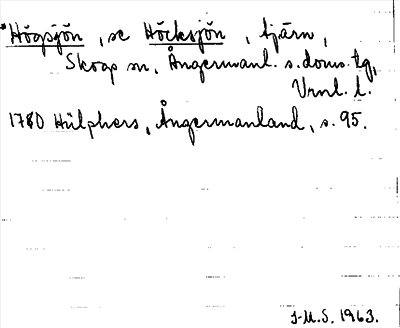 *Högsjön, se Höcksjön, tjärn,
Skogs sn, Ångermanl. s. doms. tg,
Vrnl. l.
1780 Hülphers, Ångermanland, s. 95.
J-M.S. 1963.